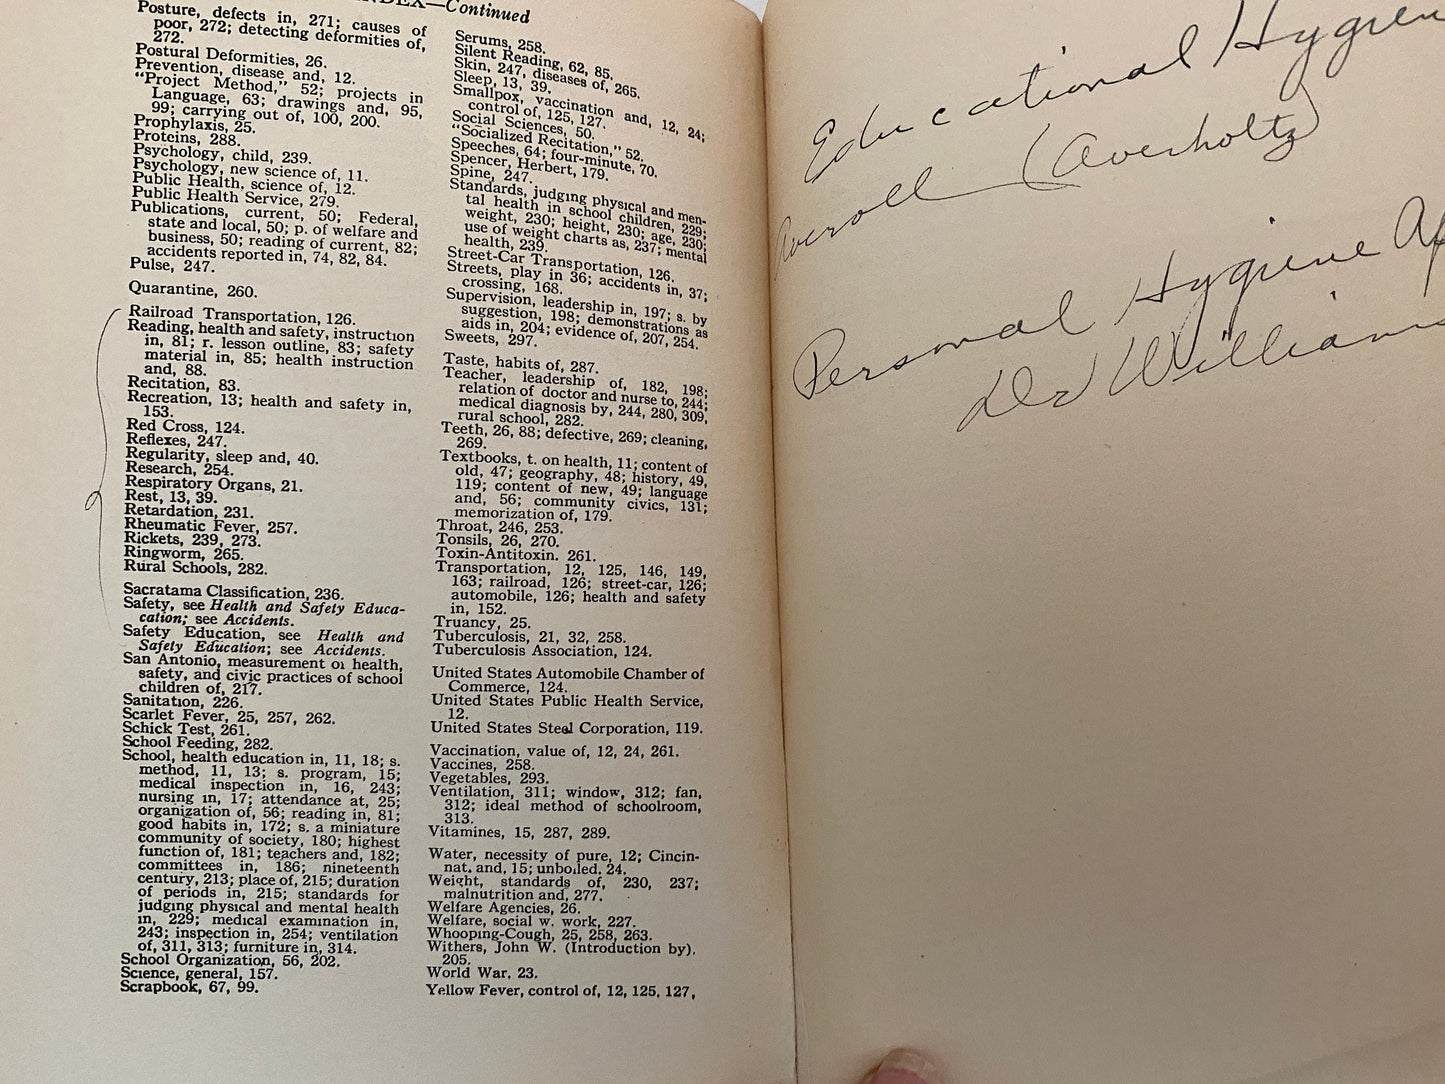 INDEX—Continued
Posture, defects in, 271; causes of
poor, 272; detecting deformities of,
272.
Postural Deformities, 26.
Prevention, disease and, 12.
"Project Method," 52; projects in
Language, 63; drawings and, 95,
99; carrying out of, 100, 200.
Prophylaxis, 25.
Proteins, 288.
Psychology, child, 239.
Psychology, new science of, 11.
Public Health, science of, 12.
Public Health Service, 279.
Publications, current, 50; Federal,
state and local, 50; p. of welfare and
business, 50; reading of current, 82;
accidents reported in, 74, 82, 84.
Pulse, 247.
Quarantine, 260.
Railroad Transportation, 126.
Reading, health and safety, instruction
in, 81; r. lesson outline, 83; safety
material in, 85; health instruction
and, 88.
Recitation, 83.
Recreation, 13; health and safety in,
153.
Red Cross, 124.
Reflexes, 247.
Regularity, sleep and, 40.
Research, 254.
Respiratory Organs, 21.
Rest, 13, 39.
Retardation, 231.
Rheumatic Fever, 257.
Rickets, 239, 273.
Ringworm, 265.
Rural Schools, 282.
Sacratama Classification, 236.
Safety, see Health and Safety Educa-
cation; see Accidents.
Safety Education, see Health and
Safety Education; see Accidents.
San Antonio, measurement of health,
safety, and civic practices of school
children of, 217.
Sanitation, 226.
Scarlet Fever, 25, 257, 262.
Schick Test, 261.
School Feeding, 282.
School, health education in, 11, 18; s.
method, 11, 13; s. program, 15;
medical inspection in, 16, 243;
nursing in, 17; attendance at, 25;
organization of, 56; reading in, 81;
good habits in, 172; s. a miniature
community of society, 180; highest
function of, 181; teachers and, 182;
committees in, 186; nineteenth
century, 213; place of, 215; duration
of periods in, 215; standards for
judging physical and mental health
in, 229; medical examination in,
243; inspection in, 254; ventilation
of, 311, 313; furniture in, 314.
School Organization, 56, 202.
Science, general, 157.
Scrapbook, 67, 99.
Serums, 258.
Silent Reading, 62, 85.
Skin, 247, diseases of, 265.
Sleep, 13, 39.
Smallpox, vaccination and, 12, 24;
control of, 125, 127.
Social Sciences, 50.
"Socialized Recitation," 52.
Speeches, 64; four-minute, 70.
Spencer, Herbert, 179.
Spine, 247.
Standards, judging physical and men-
tal health in school children, 229;
weight, 230; height, 230; age, 230;
use of weight charts as, 237; mental
health, 239.
Street-Car Transportation, 126.
Streets, play in 36; accidents in, 37;
crossing, 168.
Supervision, leadership in, 197; s. by
suggestion, 198; demonstrations as
aids in, 204; evidence of, 207, 254.
Sweets, 297.
Taste, habits of, 287.
Teacher, leadership of, 182, 198;
relation of doctor and nurse to, 244;
medical diagnosis by, 244, 280, 309,
rural school, 282.
Teeth, 26, 88; defective, 269; cleaning,
269.
Textbooks, t. on health, 11; content of
old, 47; geography, 48; history, 49,
119; content of new, 49; language
and, 56; community civics, 131;
memorization of, 179.
Throat, 246, 253.
Tonsils, 26, 270.
Toxin-Antitoxin. 261.
Transportation, 12, 125, 146, 149,
163; railroad, 126; street-car, 126;
automobile, 126; health and safety
in, 152.
Truancy, 25.
Tuberculosis, 21, 32, 258.
Tuberculosis Association, 124.
United States Automobile Chamber of
Commerce, 124.
United States Public Health Service,
12.
United States Steel Corporation, 119.
Vaccination, value of, 12, 24, 261.
Vaccines, 258.
Vegetables, 293.
Ventilation, 311; window, 312; fan,
312; ideal method of schoolroom,
313.
Vitamines, 15, 287, 289.
Water, necessity of pure, 12; Cincin-
nat. and, 15; unboiled. 24.
Weight, standards of, 230, 237;
malnutrition and, 277.
Welfare Agencies, 26.
Welfare, social w. work, 227.
Whooping-Cough, 25, 258, 263.
Withers, John W. (Introduction by).
205.
World War. 23.
Yellow Fever, control of, 12, 125, 127,
Educational Hygien
Averoll (Averholtz)
Personal Hygiene Ap
Dr Williams